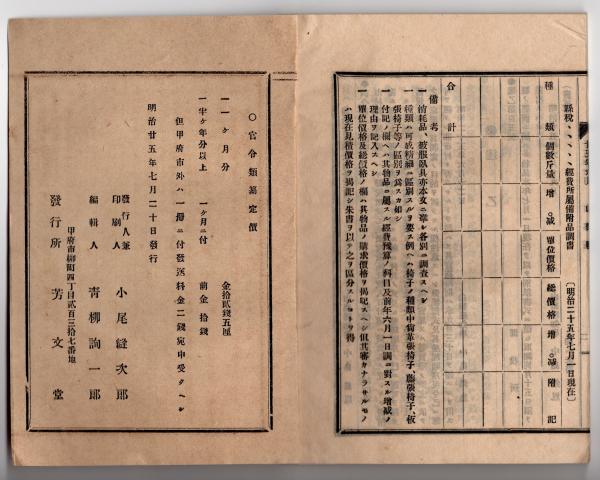 縣稅、、、、經費所屬備附品調書 〔明治二十五年七月一日現在〕
種類 個數斤量 增減 單位價格 總價格 增減 附記
合計
備考
一 消耗品、被服臥具亦本文ニ準シ各別ニ調查スヘシ
一 種類ハ可成精細ニ區別スルヲ要ス例ヘハ椅子ノ種類中揃革張椅子、膝張椅子、板
張椅子等ノ區別ヲ爲スカ如シ
一 付記ノ欄ヘハ其物品ニ屬スル經費豫算ノ科目及前年六月一日調ニ對スル增減ノ
理由ヲ記入スヘシ
一 單位價格及總價格ノ欄ハ其物品ノ購求價格ヲ揭記スヘシ但其審カナラサルモノ
ハ現在見積價格ヲ揭記シ朱書ヲ以テ之ヲ區分スルコトヲ得
○官令類纂定價
一一ケ月分 金拾貳錢五厘
一半ケ年分以上 一ケ月ニ付 前金拾錢
但甲府市外ハ一冊ニ付發送料金二錢宛申受クヘシ
明治廿五年七月二十日發行
發行人兼印刷人 小尾縫次郎
編輯人 青柳詢一郎
甲府市柳町四丁目貳百三拾七番地
發行所 芳文堂